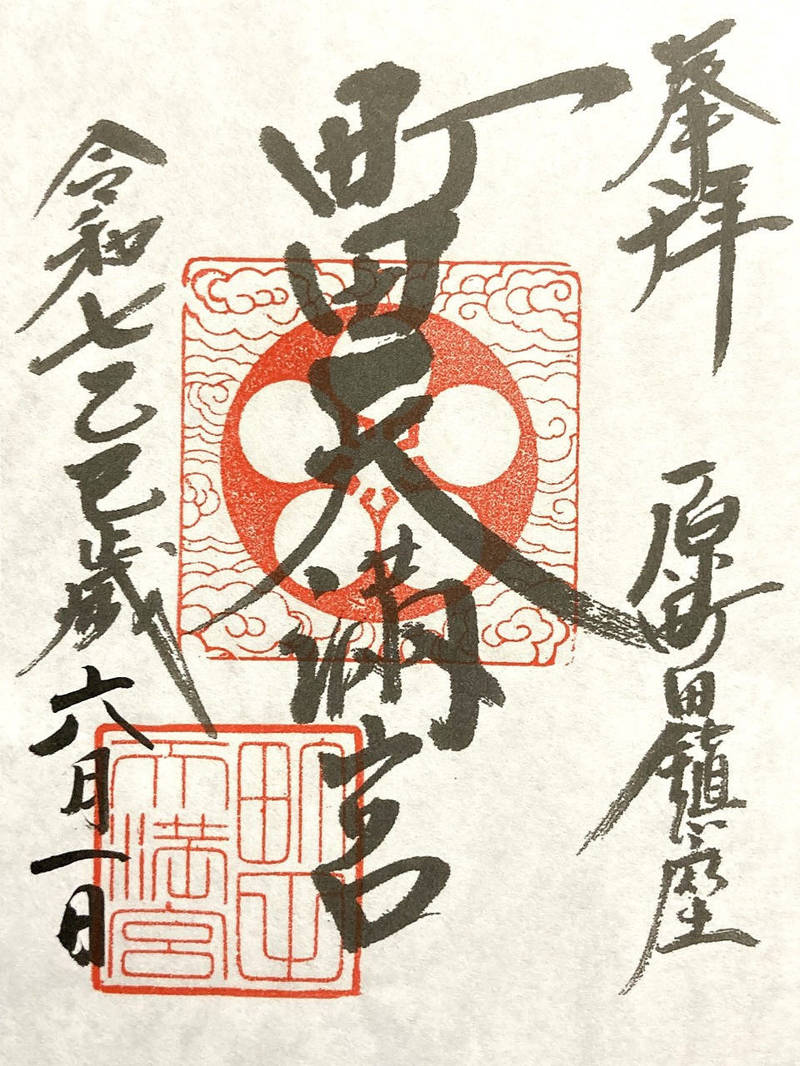 奉拝
原町田鎮座
町田天満宮
令和七乙巳歳六月一日
町田
天満宮